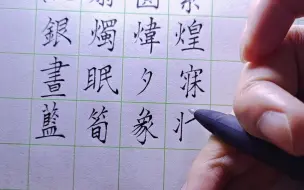 銀燭煒煌
晝眠夕寐
藍筍象